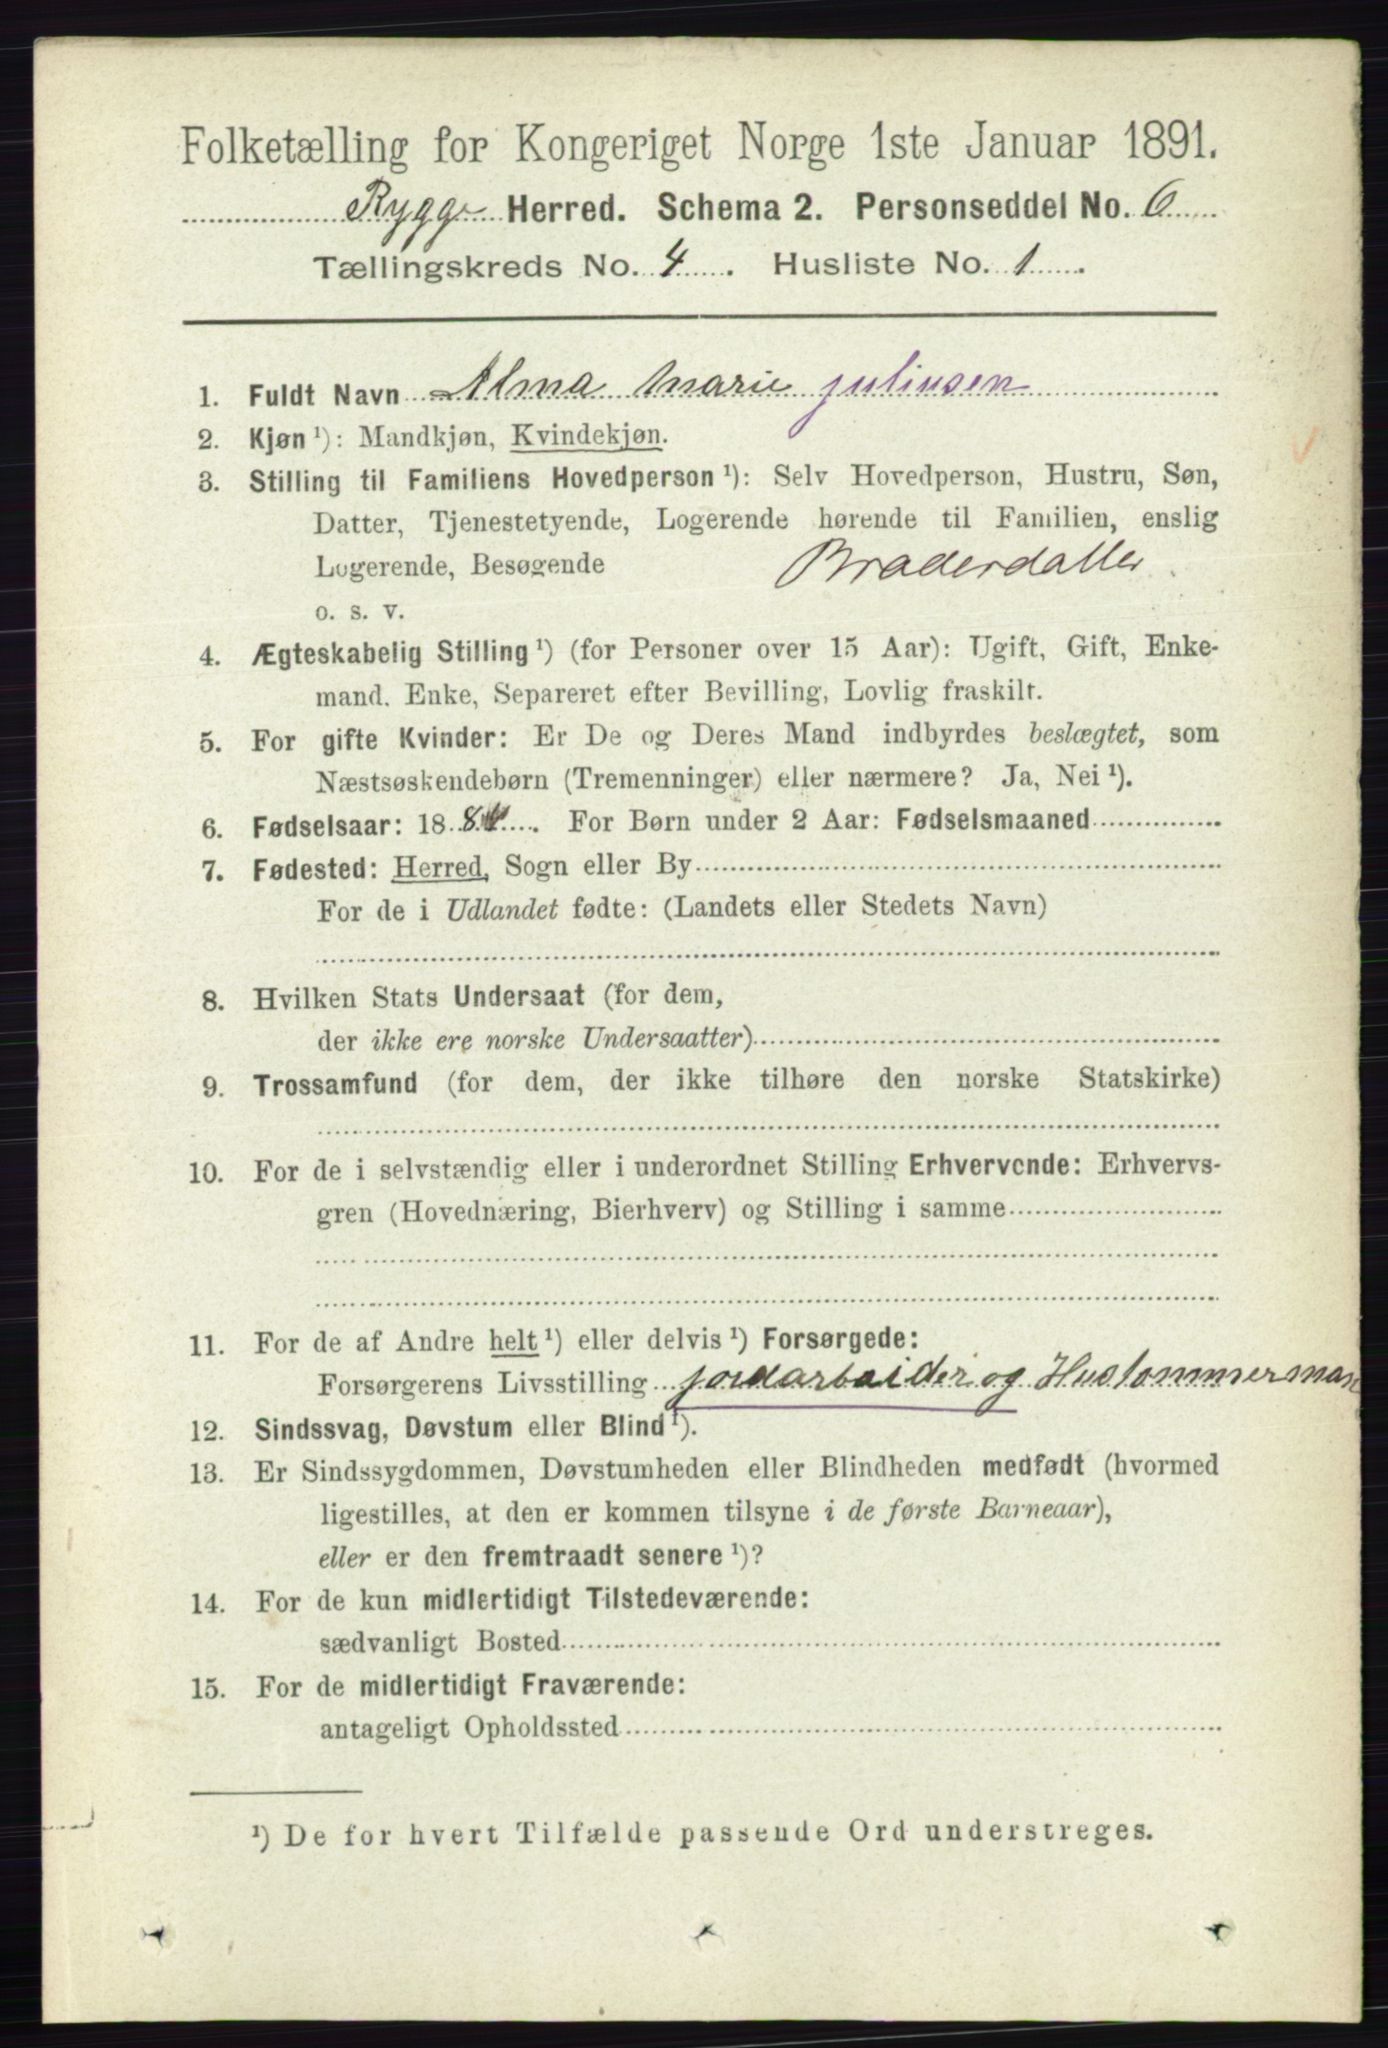 Folketælling for Kongeriget Norge 1ste Januar 1891.
Rygge Herred. Schema 2. Personseddel No. 6
Tællingskreds No. 4. Husliste No. 1.
1. Fuldt Navn Alma Marie Juliusen
2. Kjøn ¹): Mandkjøn, Kvindekjøn.
3. Stilling til Familiens Hovedperson ¹): Selv Hovedperson, Hustru, Søn,
Datter, Tjenestetyende, Logerende hørende til Familien, enslig
Logerende, Besøgende Broderdatter
o. s. v.
4. Ægteskabelig Stilling ¹) (for Personer over 15 Aar): Ugift, Gift, Enke-
mand, Enke, Separeret efter Bevilling, Lovlig fraskilt.
5. For gifte Kvinder: Er De og Deres Mand indbyrdes beslægtet, som
Næstsøskendebørn (Tremenninger) eller nærmere? Ja, Nei ¹).
6. Fødselsaar: 18 8. For Børn under 2 Aar: Fødselsmaaned
7. Fødested: Herred, Sogn eller By
For de i Udlandet fødte: (Landets eller Stedets Navn)
8. Hvilken Stats Undersaat (for dem,
der ikke ere norske Undersaatter)
9. Trossamfund (for dem, der ikke tilhøre den norske Statskirke)
10. For de i selvstændig eller i underordnet Stilling Erhvervende: Erhvervs-
gren (Hovednæring, Bierhverv) og Stilling i samme
11. For de af Andre helt ¹) eller delvis ¹) Forsørgede:
Forsørgerens Livsstilling jordarbeider og Hustommerman
12. Sindssvag, Døvstum eller Blind ¹).
13. Er Sindssygdommen, Døvstumheden eller Blindheden medfødt (hvormed
ligestilles, at den er kommen tilsyne i de første Barneaar),
eller er den fremtraadt senere ¹)?
14. For de kun midlertidigt Tilstedeværende:
sædvanligt Bosted
15. For de midlertidigt Fraværende:
antageligt Opholdssted
¹) De for hvert Tilfælde passende Ord understreges.